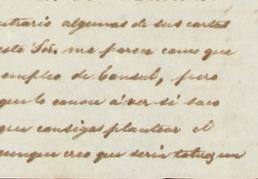 ntrario algunas de sus cartas
este Sor. me parece como que
empleo de Consul, pero
que lo canse á ver si saco
que consigas plantear el
aunque creo que seria tal vez un